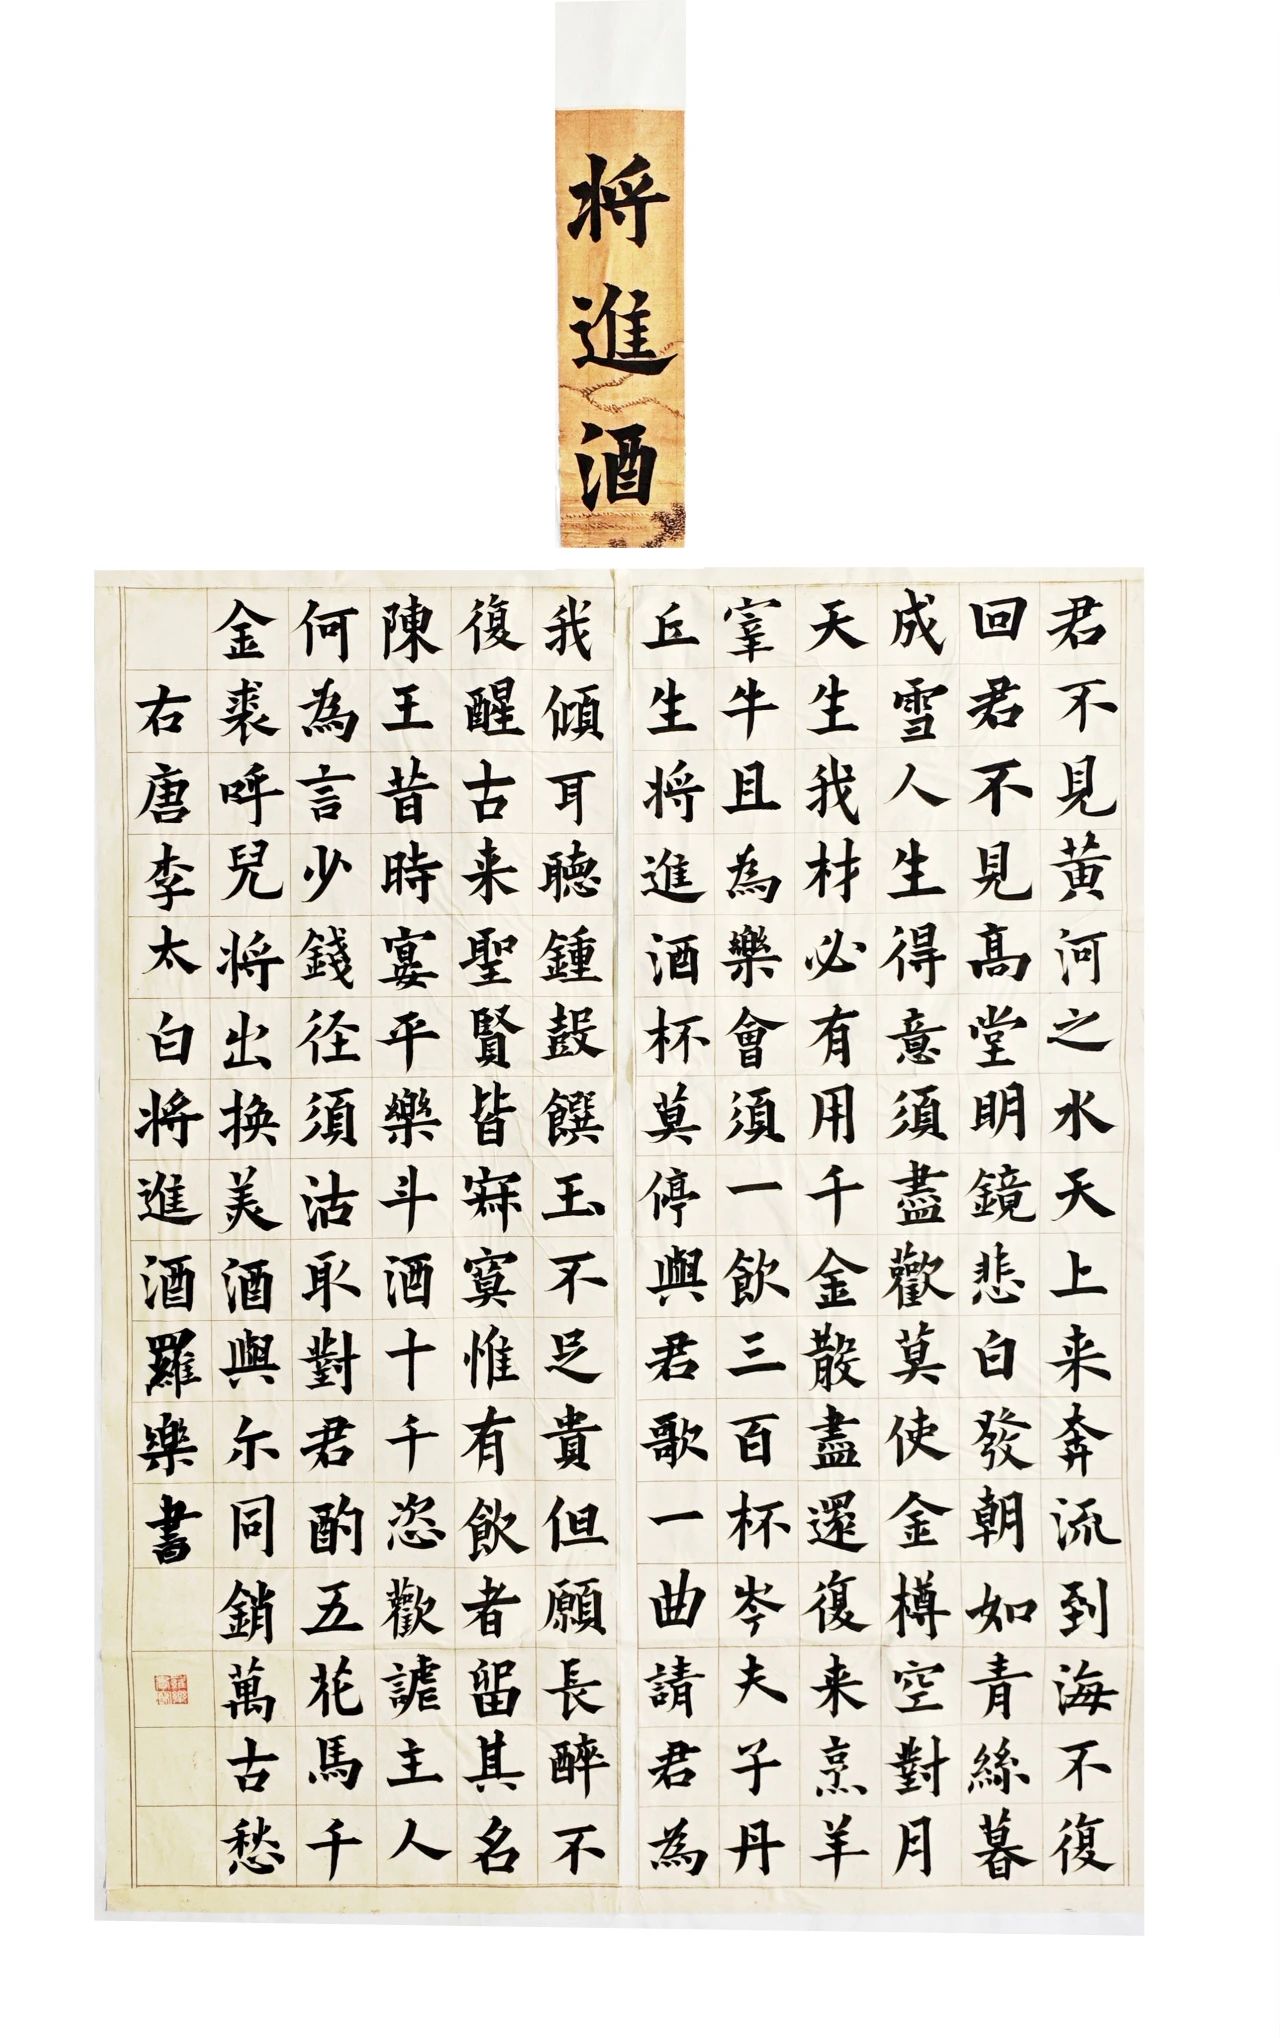 将進酒
君不見黃河之水天上来奔流到海不復
回君不見高堂明鏡悲白發朝如青絲暮
成雪人生得意須盡歡莫使金樽空對月
天生我材必有用千金散盡還復来烹羊
宰牛且為樂會須一飲三百杯岑夫子丹
丘生将進酒杯莫停與君歌一曲請君為
我傾耳聽鍾鼓饌玉不足貴但願長醉不
復醒古来聖賢皆寂寞惟有飲者留其名
陳王昔時宴平樂斗酒十千恣歡謔主人
何為言少錢径須沽取對君酌五花馬千
金裘呼兒将出換美酒與尔同銷萬古愁
右唐李太白将進酒羅樂書